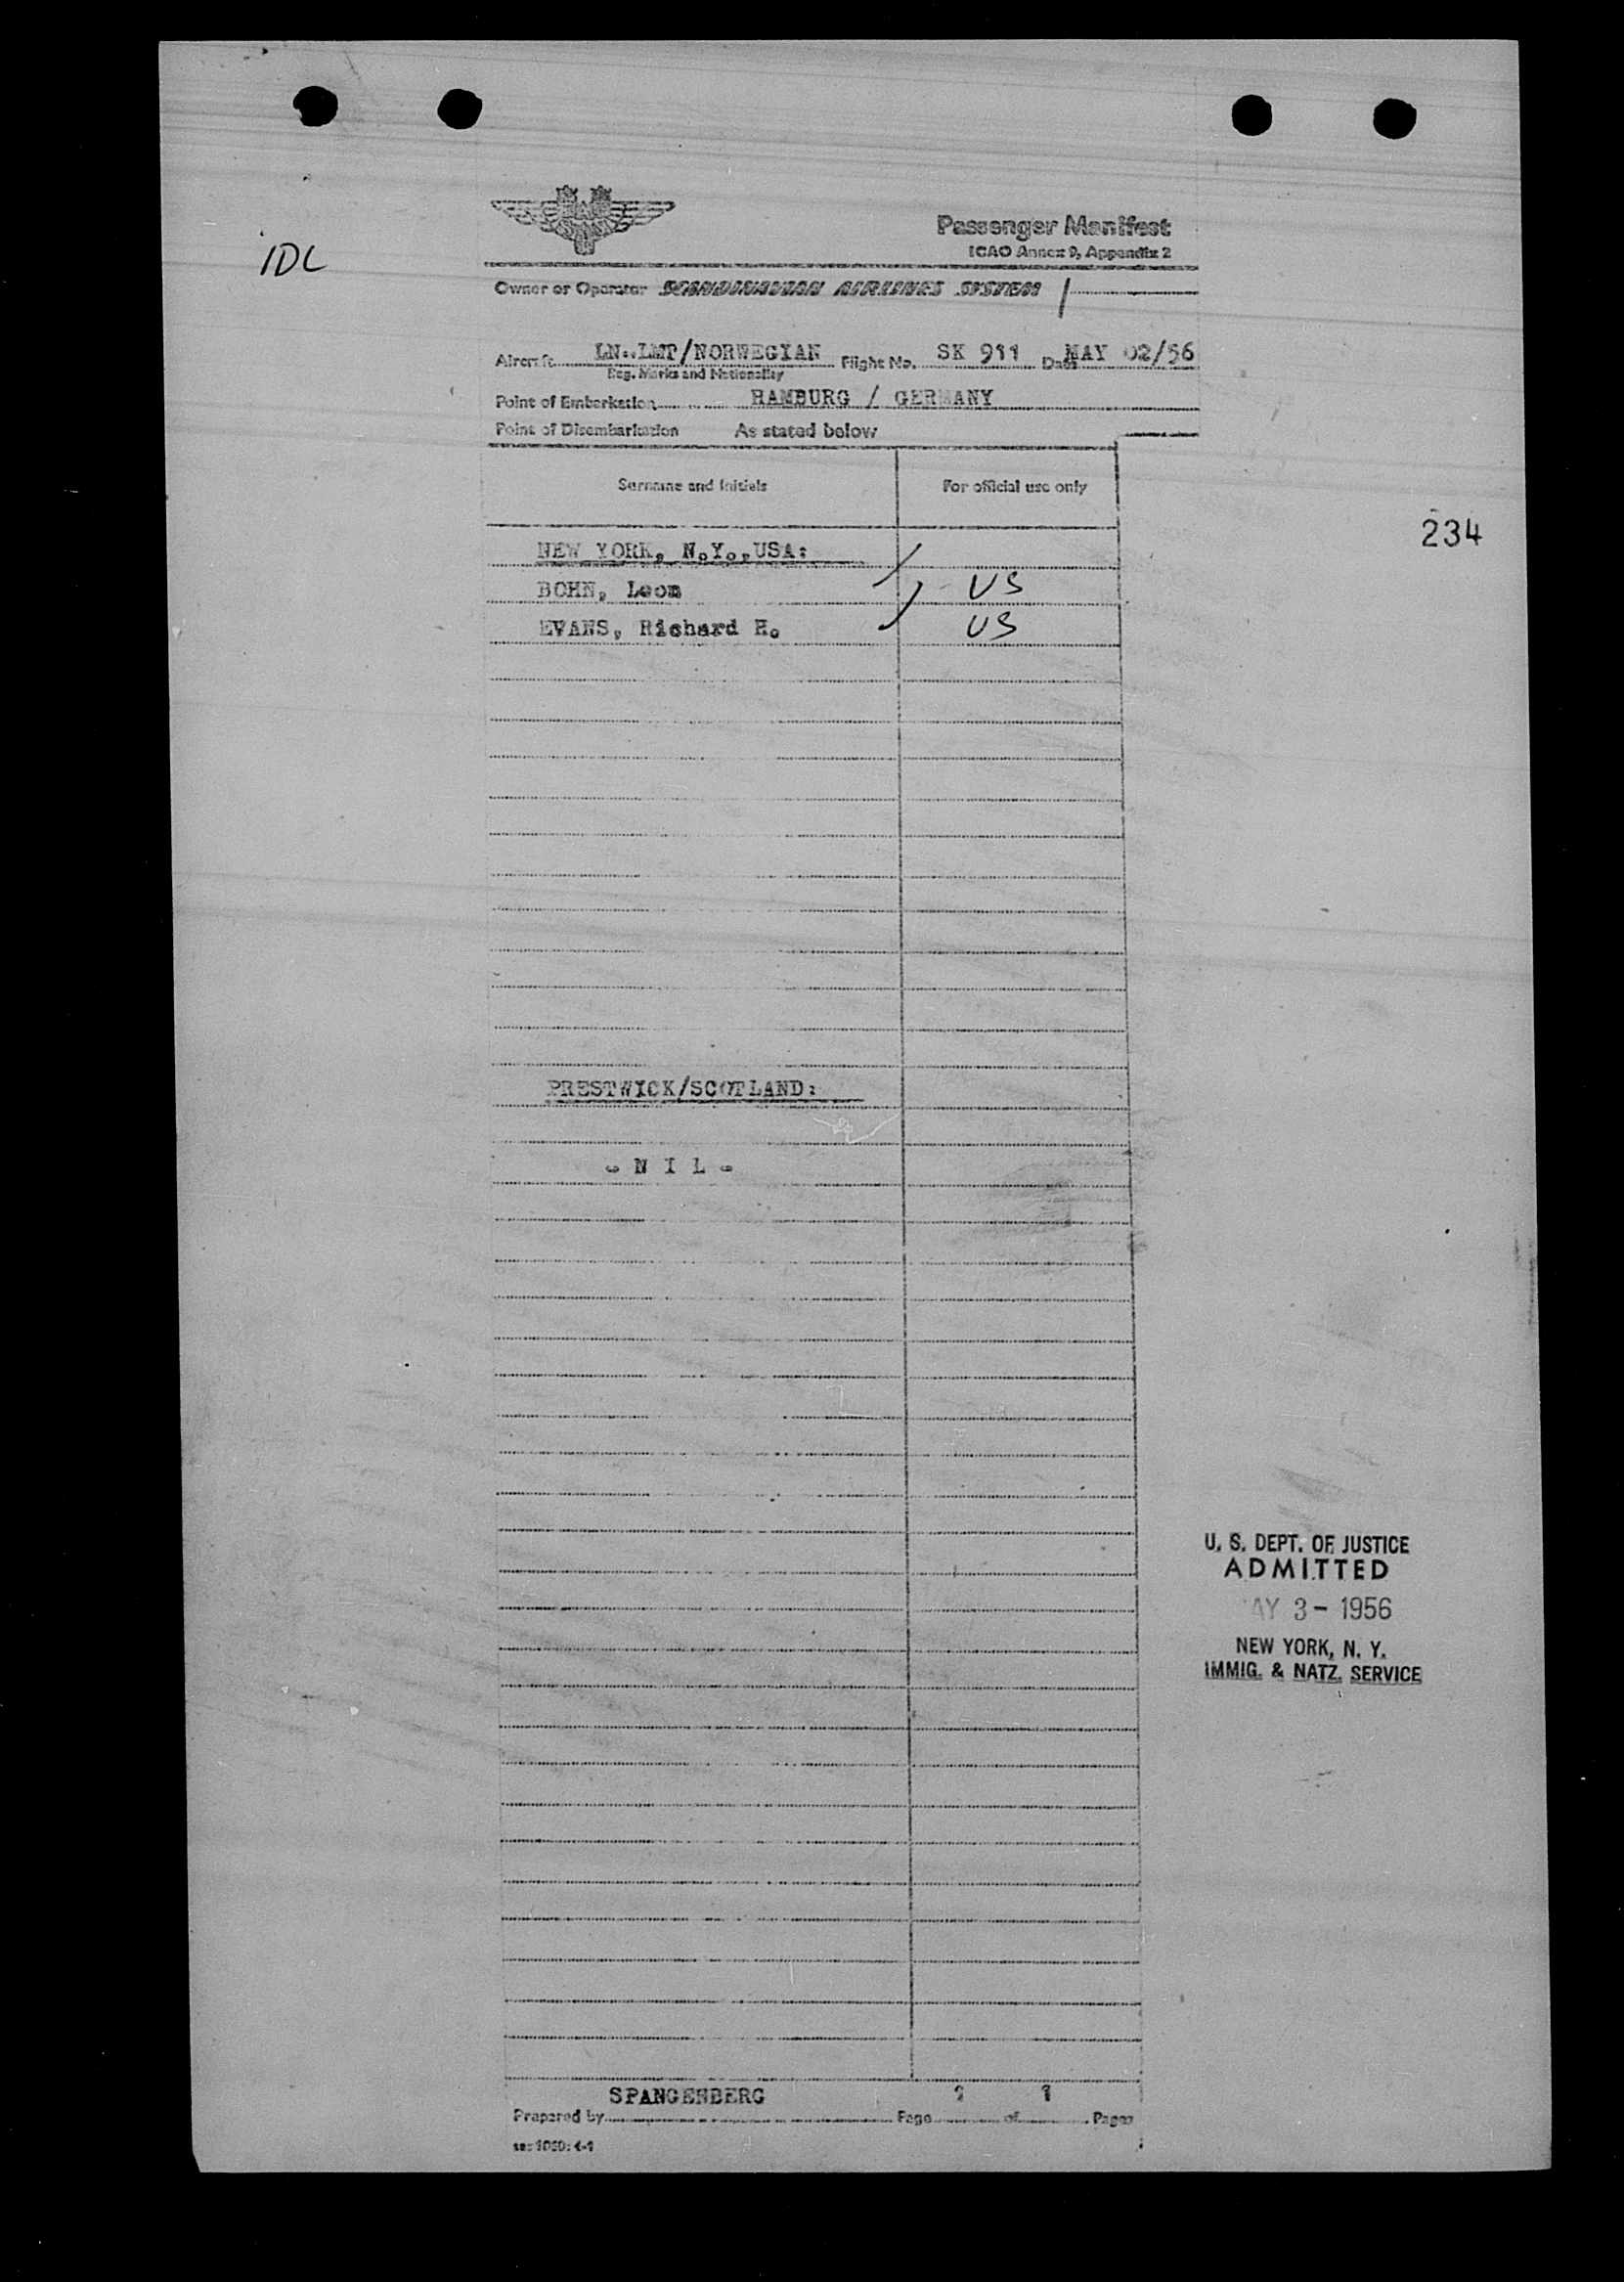 Passenger Manifest
ICAO Annex 9, Appendix 2
IDL
Owner or Operator SCANDINAVIAN AIRLINES SYSTEM
Aircraft LN-LMP/NORWEGIAN Flight No. SK 911 Date MAY 02/56
Reg. Marks and Nationality
Point of Embarkation HAMBURG / GERMANY
Point of Disembarkation As stated below
Surname and Initials For official use only
234
NEW YORK, N.Y.,USA:
BOHN, Leon US
EVANS, Richard H. US
PRESTWICK/SCOTLAND:
- N I L -
U. S. DEPT. OF JUSTICE
ADMITTED
MAY 3- 1956
NEW YORK, N. Y.
IMMIG. & NATZ. SERVICE
SPANGENBERG 1 1
Prepared by Page of Pages